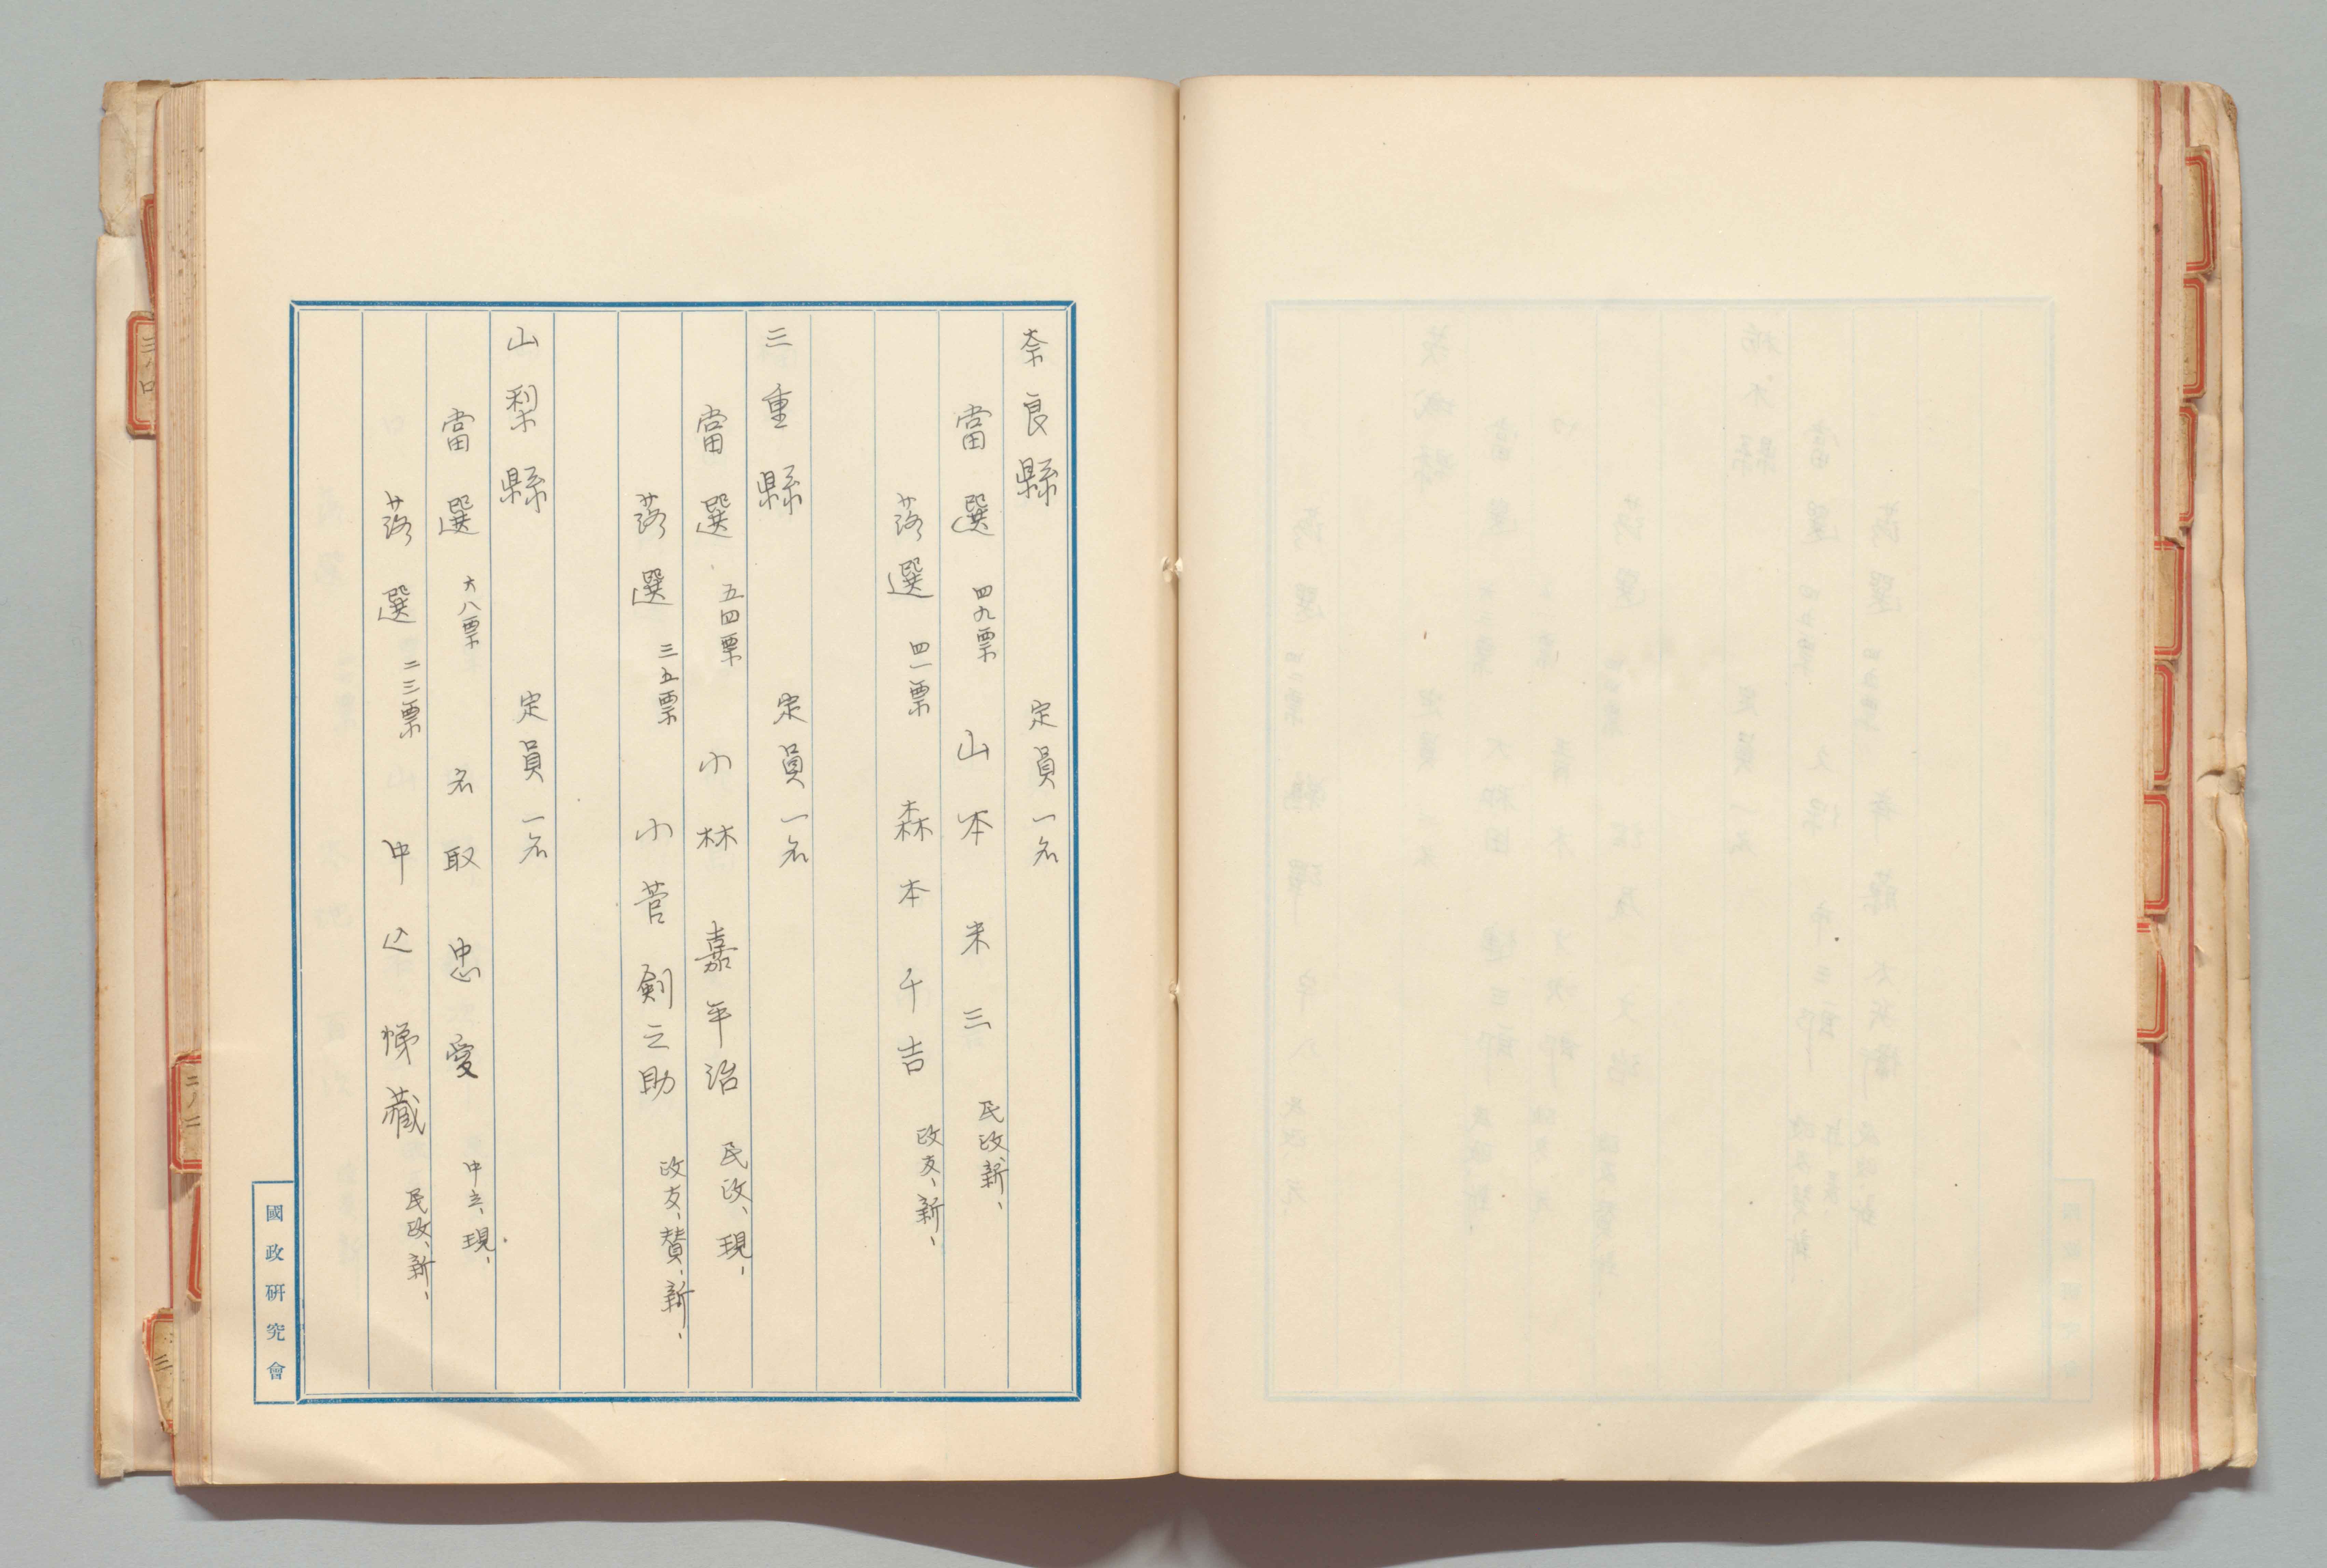 奈良縣 定員一名
當選 四九票 山本米三 民政、新、
落選 四一票 森本千吉 政友、新、
三重縣 定員一名
當選 五四票 小林嘉平治 民政、現、
落選 三五票 小菅剣之助 政友、賛、新、
山梨縣 定員一名
當選 六八票 名取忠愛 中立、現、
落選 二三票 中込悌藏 民政、新、
國政研究會
三ノ口
二ノ二
三